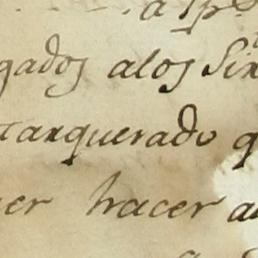 a
gados alos Sir
tarquerado q
er hacer a